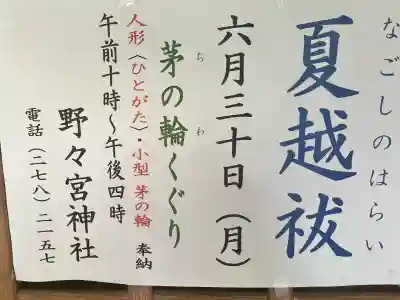 なごしのはらい
夏越祓
六月三十日(月)
ちわ
茅の輪くぐり
人形(ひとがた)・小型 茅の輪 奉納
午前十時〜午後四時
野々宮神社
電話(二七八)二一五七